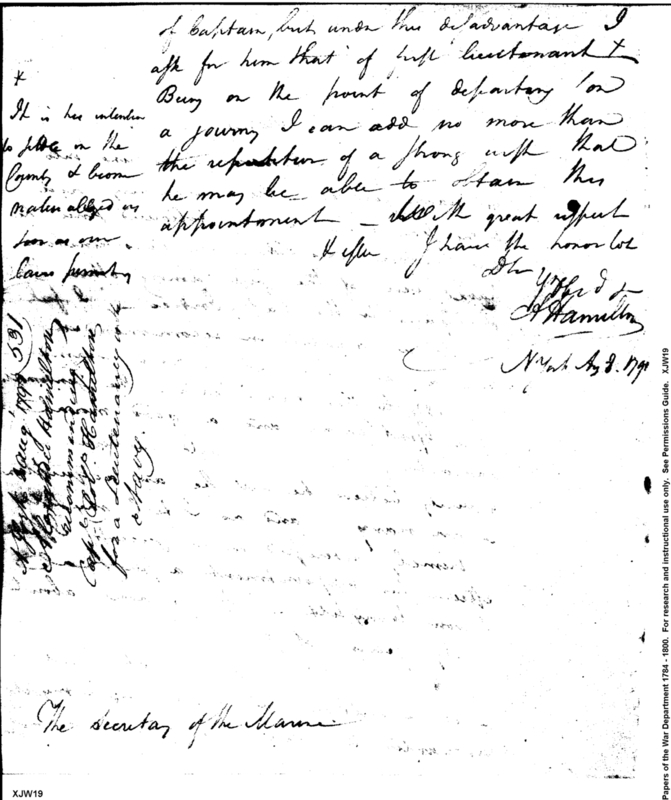 of Captain, but under this disadvantage I
ask for him that of first lieutenant +
Being on the point of departing on
a journey I can add no more than
the repetition of a strong wish that
he may be able to obtain this
appointment – With great respect
& esteem I have the honor to
A Hamilton
N York Aug 8. 179
*
It is his intention
to on the
County & become
as
soon as our
Laws permit
Aug 179 531
Hamilton
Hamilton
for a Lieutenancy in the
Navy.
The Secretary of the Marine
XJW19
Papers of the War Department 1784 - 1800. For research and instructional use only. See Permissions Guide. XJW19